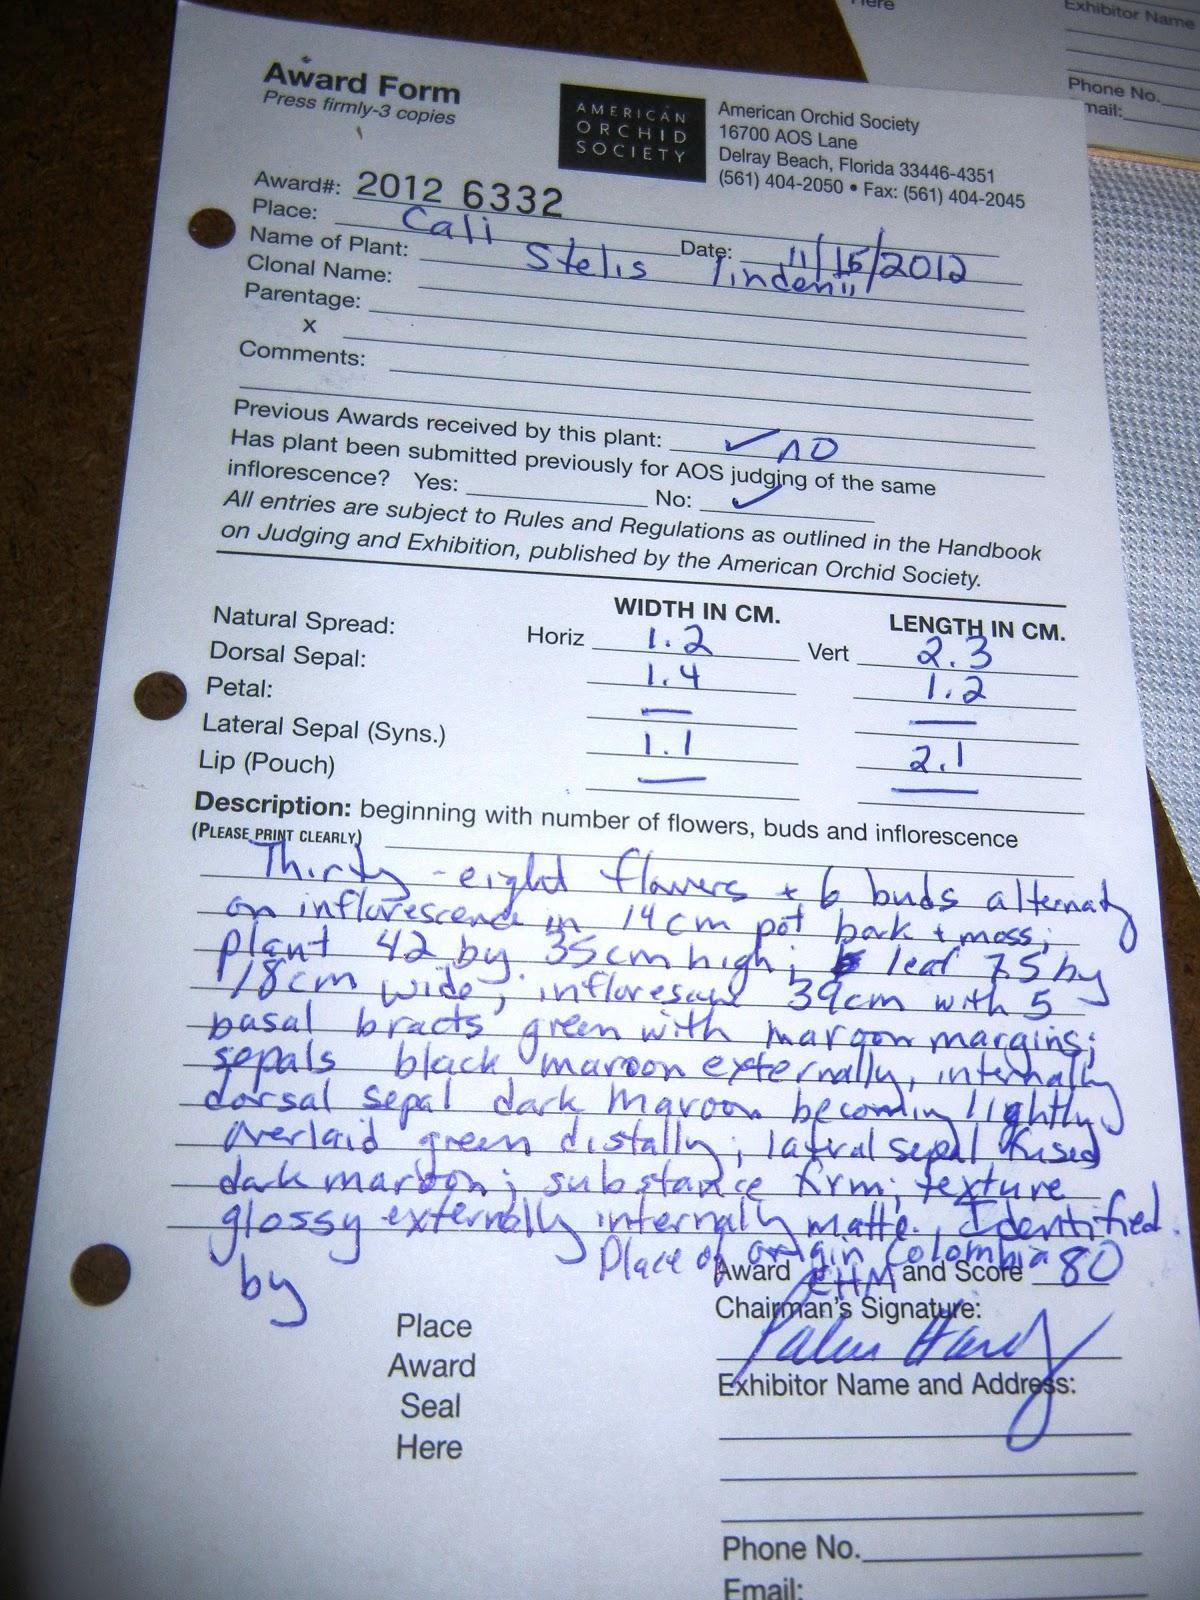 Here
Exhibitor Name
Phone No.
mail:
Award Form
Press firmly-3 copies
AMERICAN
ORCHID
SOCIETY
American Orchid Society
16700 AOS Lane
Delray Beach, Florida 33446-4351
(561) 404-2050 • Fax: (561) 404-2045
Award#: 2012 6332
Place: Cali Date: 11/15/2012
Name of Plant: Stelis lindenii
Clonal Name:
Parentage:
x
Comments:
Previous Awards received by this plant: ✓ no
Has plant been submitted previously for AOS judging of the same
inflorescence? Yes: No: ✓
All entries are subject to Rules and Regulations as outlined in the Handbook
on Judging and Exhibition, published by the American Orchid Society.
WIDTH IN CM. LENGTH IN CM.
Natural Spread: Horiz 1.2 Vert 2.3
Dorsal Sepal: 1.4 1.2
Petal: — —
Lateral Sepal (Syns.) 1.1 2.1
Lip (Pouch) — —
Description: beginning with number of flowers, buds and inflorescence
(PLEASE PRINT CLEARLY)
Thirty-eight flowers + 6 buds alternatly
on inflorescence in 14cm pot bark + moss;
plant 42 by 35cm high; leaf 7.5 by
18cm wide; inflorescence 39cm with 5
basal bracts green with maroon margins;
sepals black maroon externally, internally
dorsal sepal dark maroon becoming lightly
overlaid green distally; lateral sepal fused
dark maroon; substance firm; texture
glossy externally internally matte., Identified
by Place of origin Colombia
Award CHM and Score 80
Chairman's Signature:
Exhibitor Name and Address:
Place
Award
Seal
Here
Phone No.
Email: